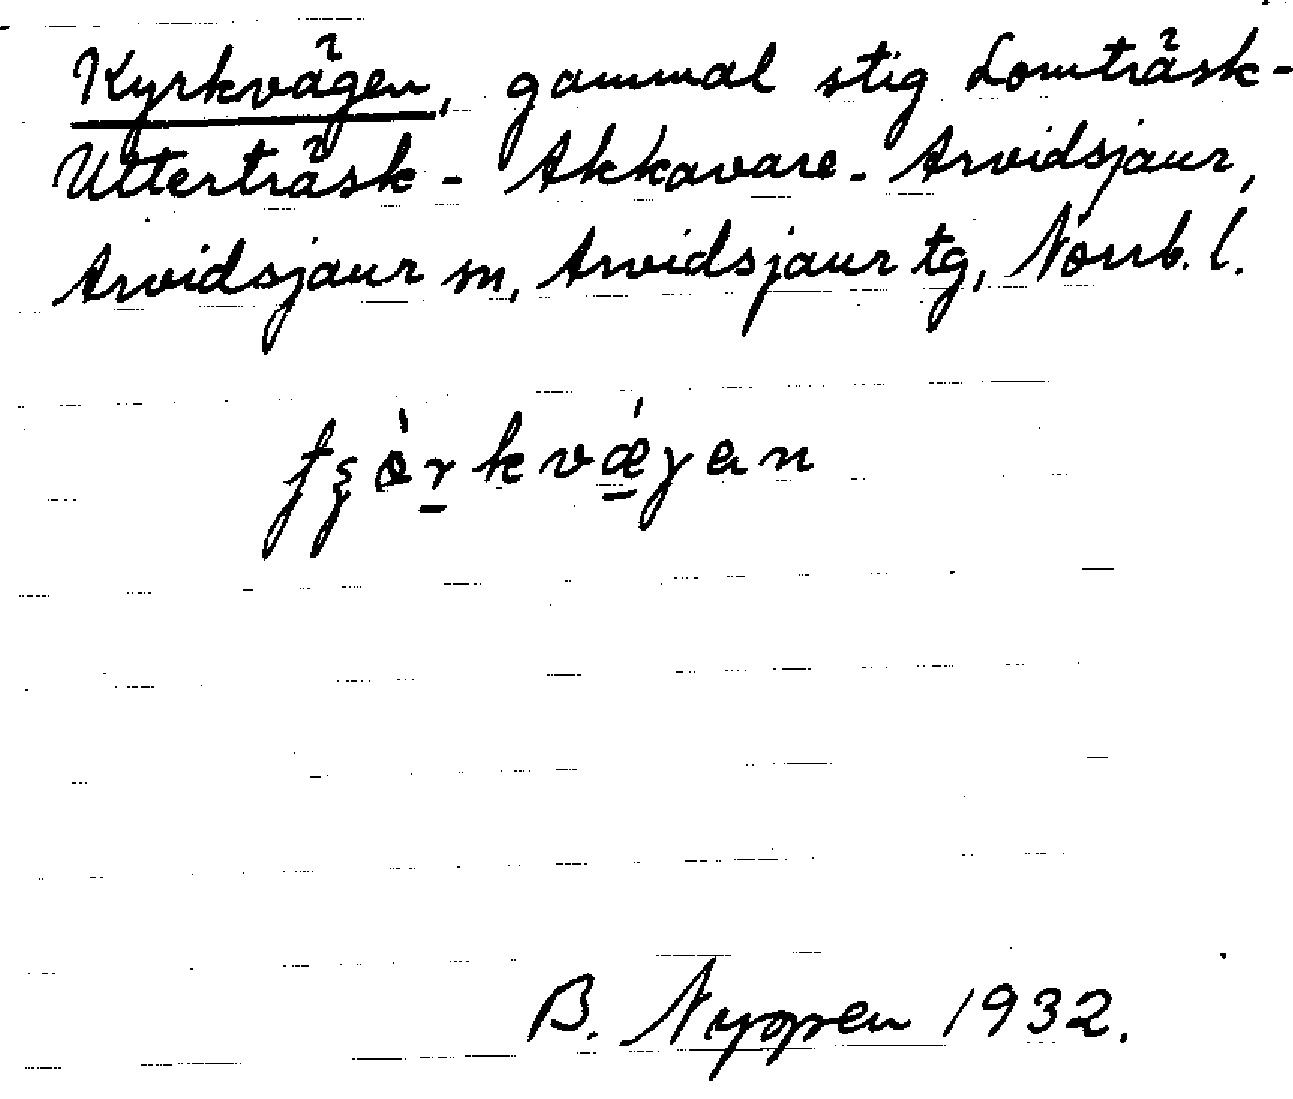 Kyrkvägen, gammal stig Lomträsk-
Utterträsk - Akkavare - Arvidsjaur,
Arvidsjaur sn, Arvidsjaur tg, Norrb. l.
B. Nyppen 1932.